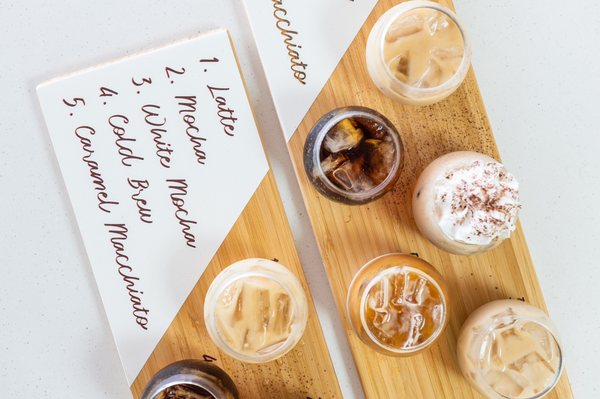 1. Latte
2. Mocha
3. White Mocha
4. Cold Brew
5. Caramel Macchiato
Macchiato
4